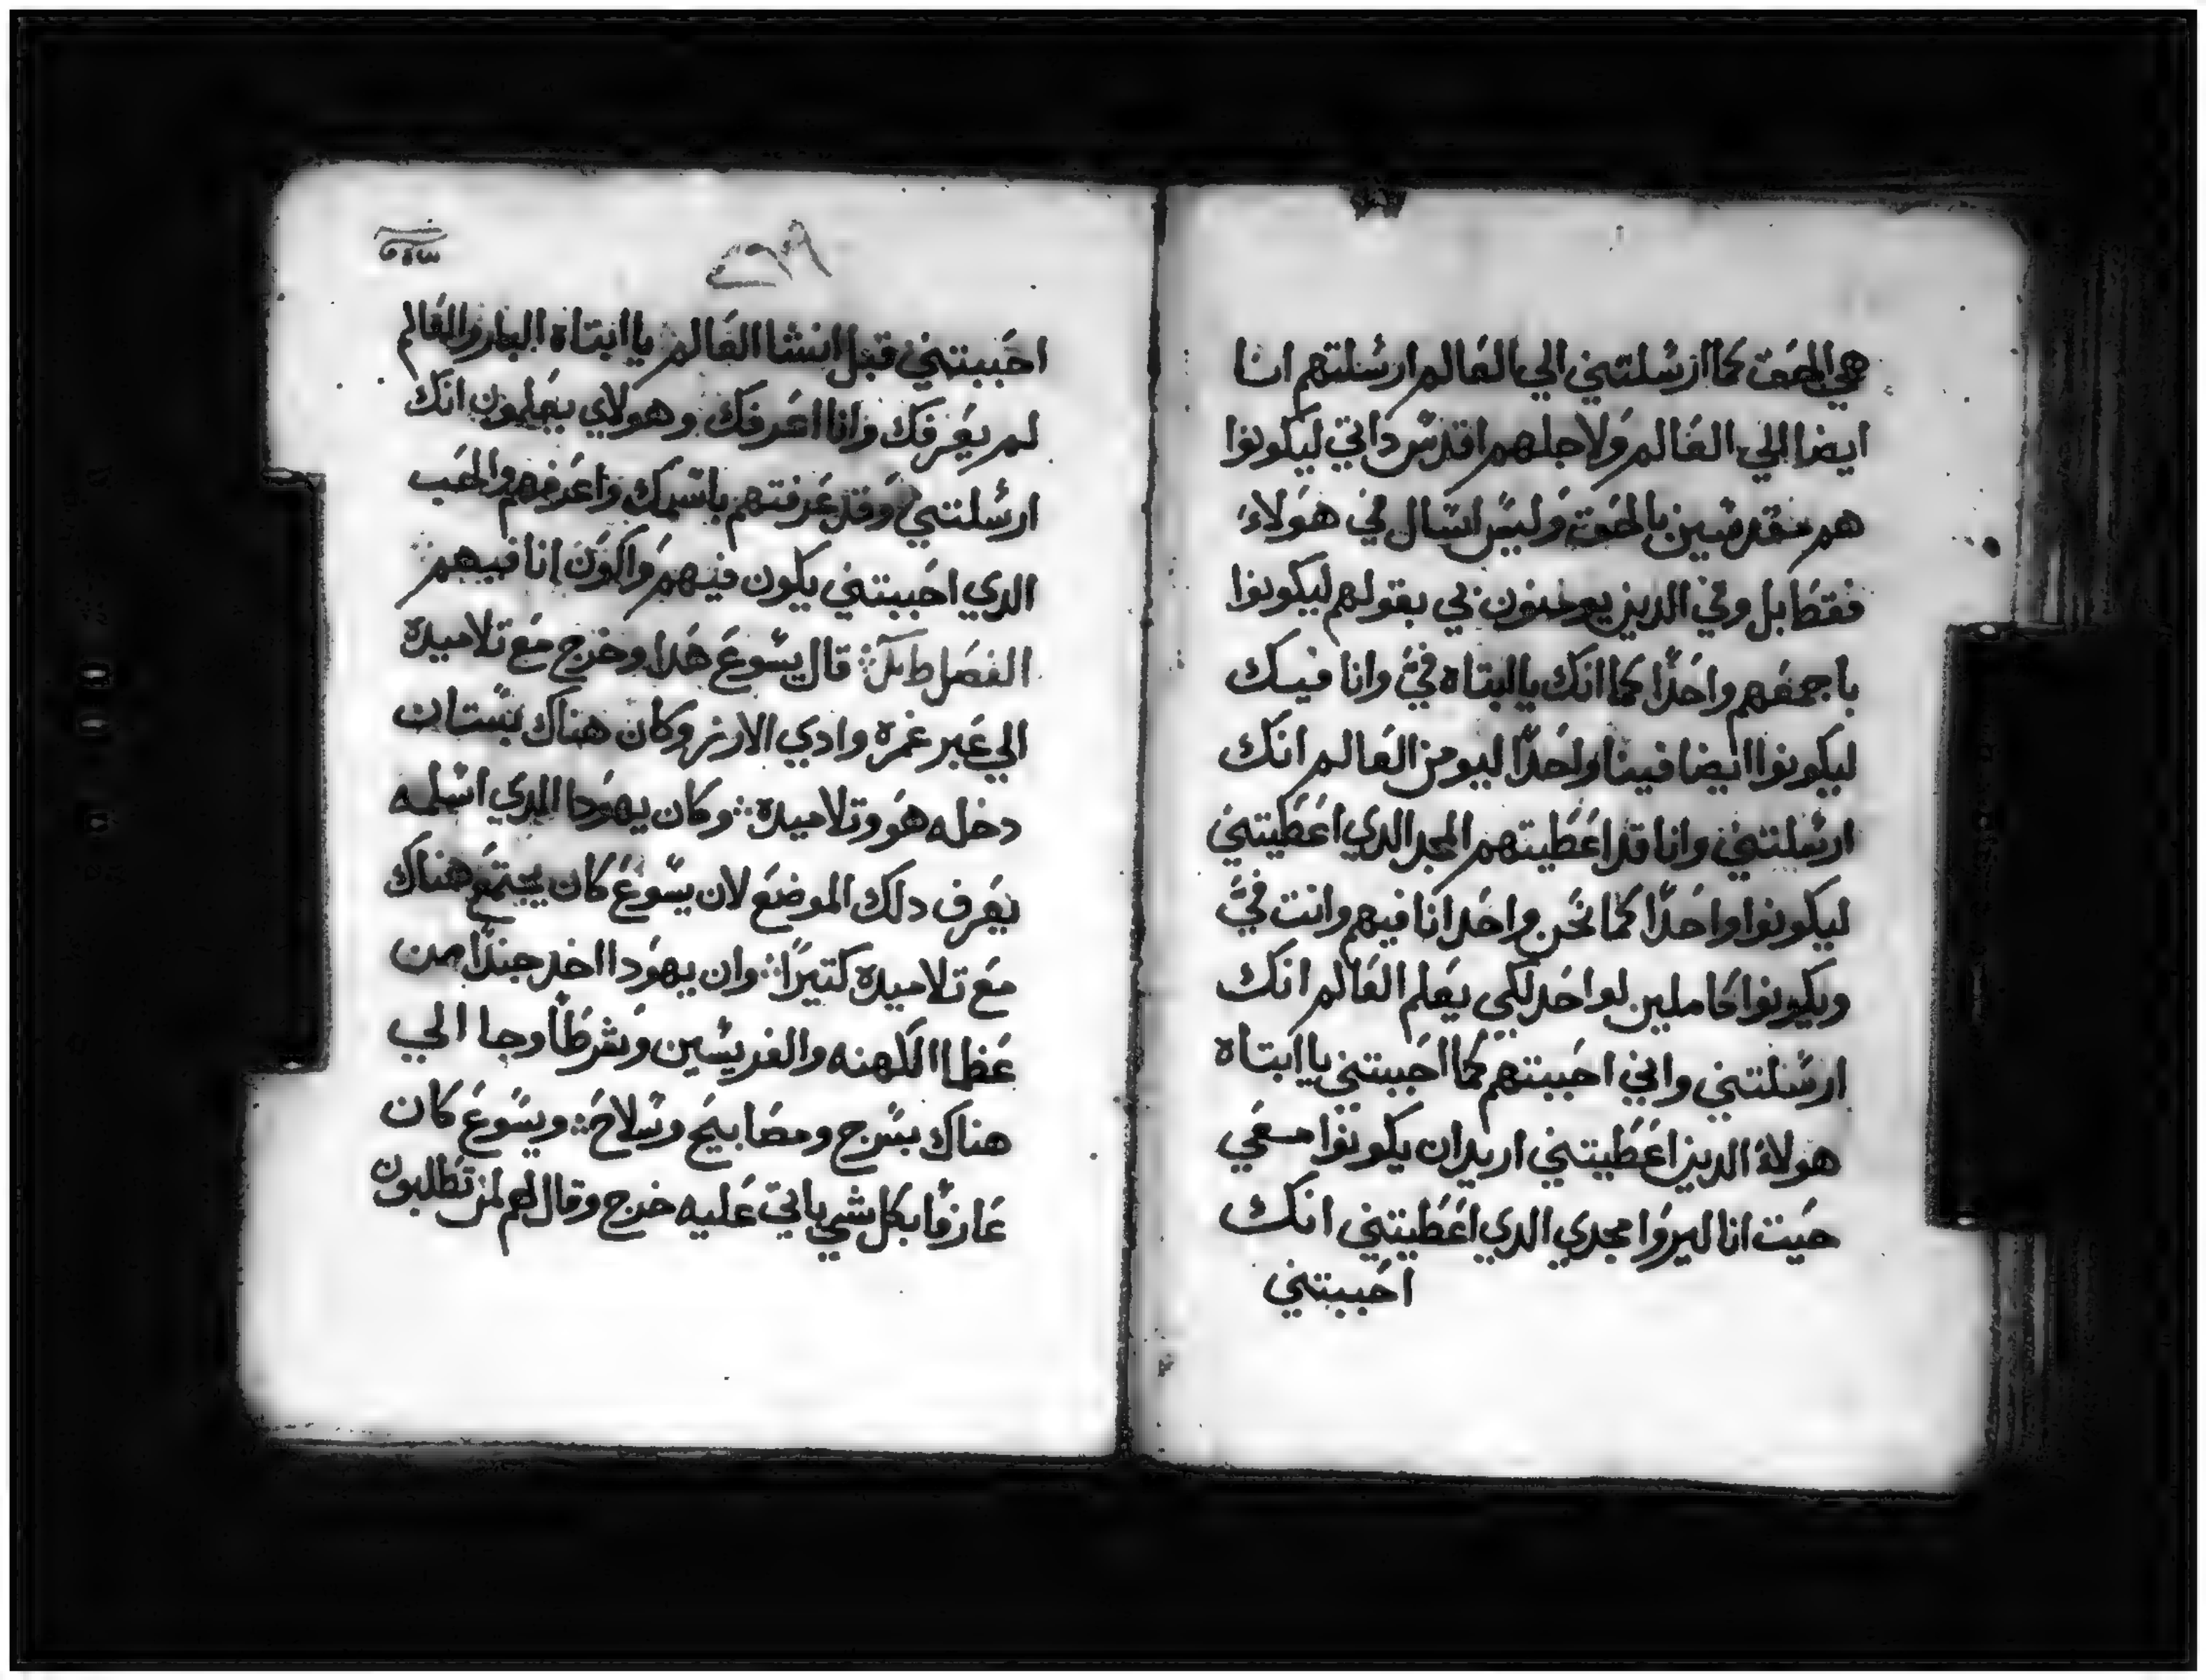 هي الحق كما ارسلتني الي العالم ارسلتهم انا
ايضا الي العالم ولاجلهم اقدس داتي ليكونوا
هم مقدسين بالحق وليس اسال في هولاء
فقط بل وفي الدين يومنون بي بقولهم ليكونوا
باجمعهم واحدًا كما انك ياابتاه فيَّ وانا فيك
ليكونوا ايضا فينا واحدًا ليومن العالم انك
ارسلتني وانا قد اعطيتهم المجد الدي اعطيتني
ليكونوا واحدًا كما نحن واحد انا فيهم وانت فيَّ
ويكونوا كاملين لواحد لكي يعلم العالم انك
ارسلتني واني احببتهم كما احببتني ياابتاه
هولاء الدين اعطيتني اريد ان يكونوا معي
حيت انا ليروا مجدي الدي اعطيتني انك
احببتني
احببتني قبل انشا العالم ياابتاه البار والعالم
لم يعرفك وانا اعرفك وهولاي يعلمون انك
ارسلتني وقد عرفتهم باسمك واعرفهم والحب
الدي احببتني يكون فيهم واكون انا فيهم
الفصل قال يسوع هدا وخرج مع تلاميده
الي عبر غمرة وادي الارز وكان هناك بستان
دخله هو وتلاميده وكان يهودا الدي اسلمه
يعرف دلك الموضع لان يسوع كان يجتمع هناك
مع تلاميده كتيرًا وان يهودا اخد جندًا من
عظما الكهنه والفريسين وشرطًا وجا الي
هناك بسرج ومصابيح وسلاح ويسوع كان
عارفًا بكل شي ياتي عليه خرج وقال لهم لمن تطلبون